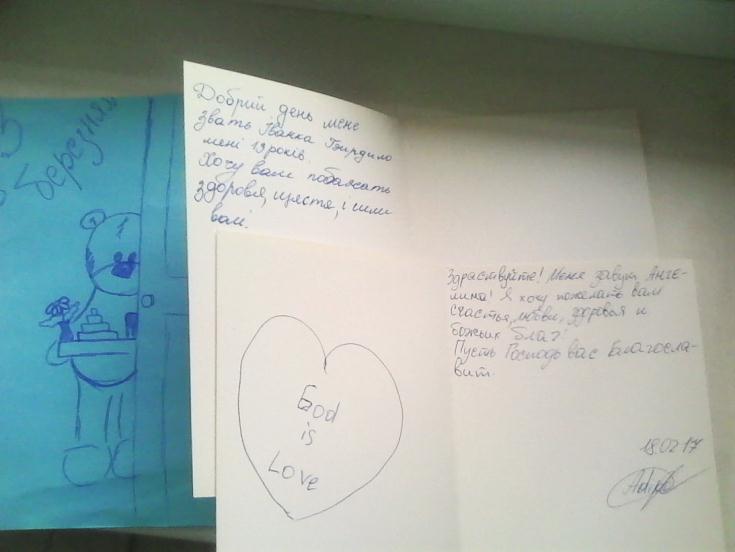 З
березня
Добрий день мене
звать Іванка
мені 19 років.
Хочу вам побажать
здоровя, щястя, і сили
вам.
God
is
Love
Здраствуйте! Меня завут Анге-
лина! Я хочу пожелать вам
счастья, любви, здоровья и
божьих благ!
Пусть Господь вас Благосла-
вит.
18.02.17